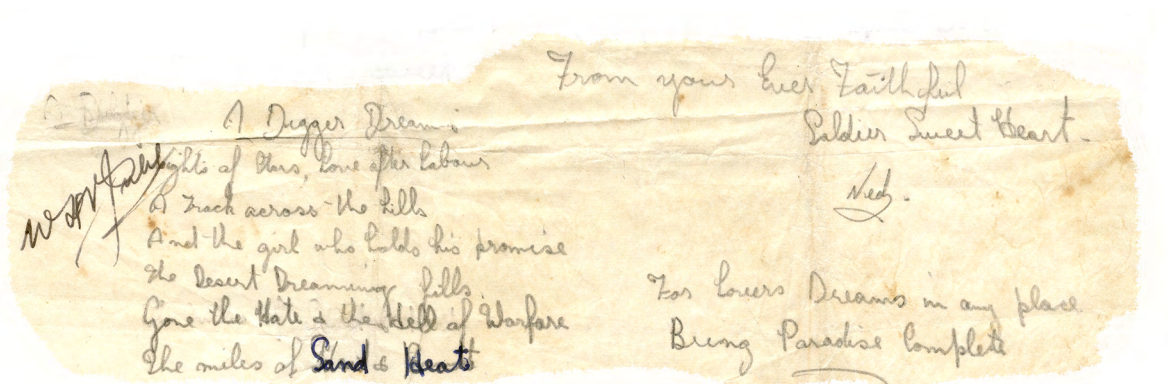 A Digger Dreams
Nights of Stars, Love after Labour
A Track across the hills
And the girl who holds his promise
The Desert Dreamming fills
Gone the Hate & the Hell of Warfare
The miles of Sand & Heat
From your Ever Faithful
Soldier Sweet Heart.
Ned.
For lovers Dreams in any place
Bring Paradise Complete